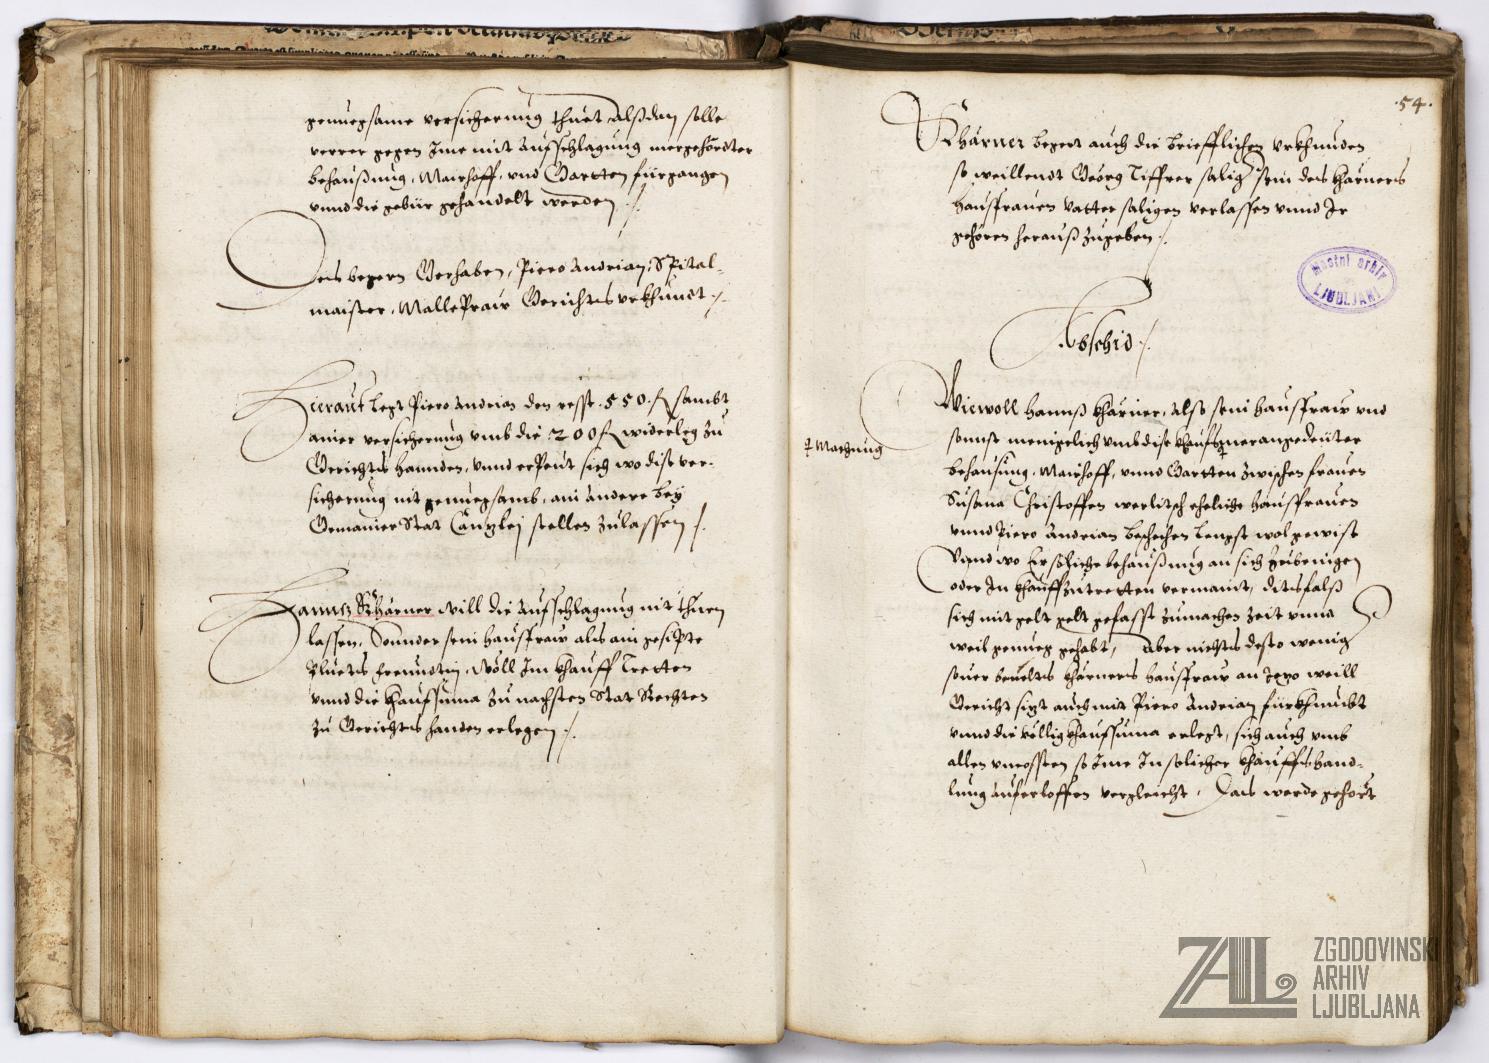 genuegsame versicherung thuet Alßdan solle
verrer gegen Ime mit Aufschlagung mergehördter
behaußung, Mairhoff, und Gartten fürgangen
vnnd die gebür gehandelt werden ./.
Des begern Gerhaben, Piero Andrian, Spital-
maister, Malle Praw Gerichts vrkhundt ./.
Hierauf legt Piero Andrian den resst .550. fl sambt
ainer versicherung vmb die 200 fl widerleg zu
Gerichts hannden, vnnd erPeut sich wo dise ver-
sicherung nit genuegsamb, ain andere bey
Gemainer Stat Canzley stellen zulassen ./.
Hannß Khärner will die Aufschlagung nit thuen
lassen, Sonnder sein hausfraw als ain gesipte
Pluets freundtin, Wöll Im khauff Tretten
vnnd die khaufsuma zu nachsten Stat Rechten
zu Gerichts handen erlegen ./.
.54.
Khärner begert auch die briefflichen vrkhunden
so weillendt Geörg Tiffrer salig sein des khärners
hausfrauen vatter saligen verlassen vnnd Ir
gehören herauß zugeben ./.
Mestni arhiv
LJUBLJANI
Abschid ./.
Wiewoll Hannß khärner, Also sein hausfraw vnd
sonnst menigelich vmb dise khaufs merangedeuter
Machung
behausung, Mairhoff, vnnd Gartten zwischen frauen
Susana Christoffen werlitsch eheliche hausfrauen
vnnd Piero Andrian beschehen lengst wol gewist
Vnnd wo Er soliche behaußung an sich zubringen
oder In khauff zutretten vermaint, dits falß
sich mit gelt gefasst zumachen zeit vnnd
weil genueg gehabt, Aber nichts desto wenig
souer bemelts khärners hausfraw an Iezo weill
Gericht sizt auch mit Piero Andrian fürkhumbt
vnnd die völlig khaufsuma erlegt, sich auch vmb
allen vncossten so Ime In solicher khauffs hand-
lung auferloffen vergleicht, Das werde gehört
ZAL ZGODOVINSKI
ARHIV
LJUBLJANA